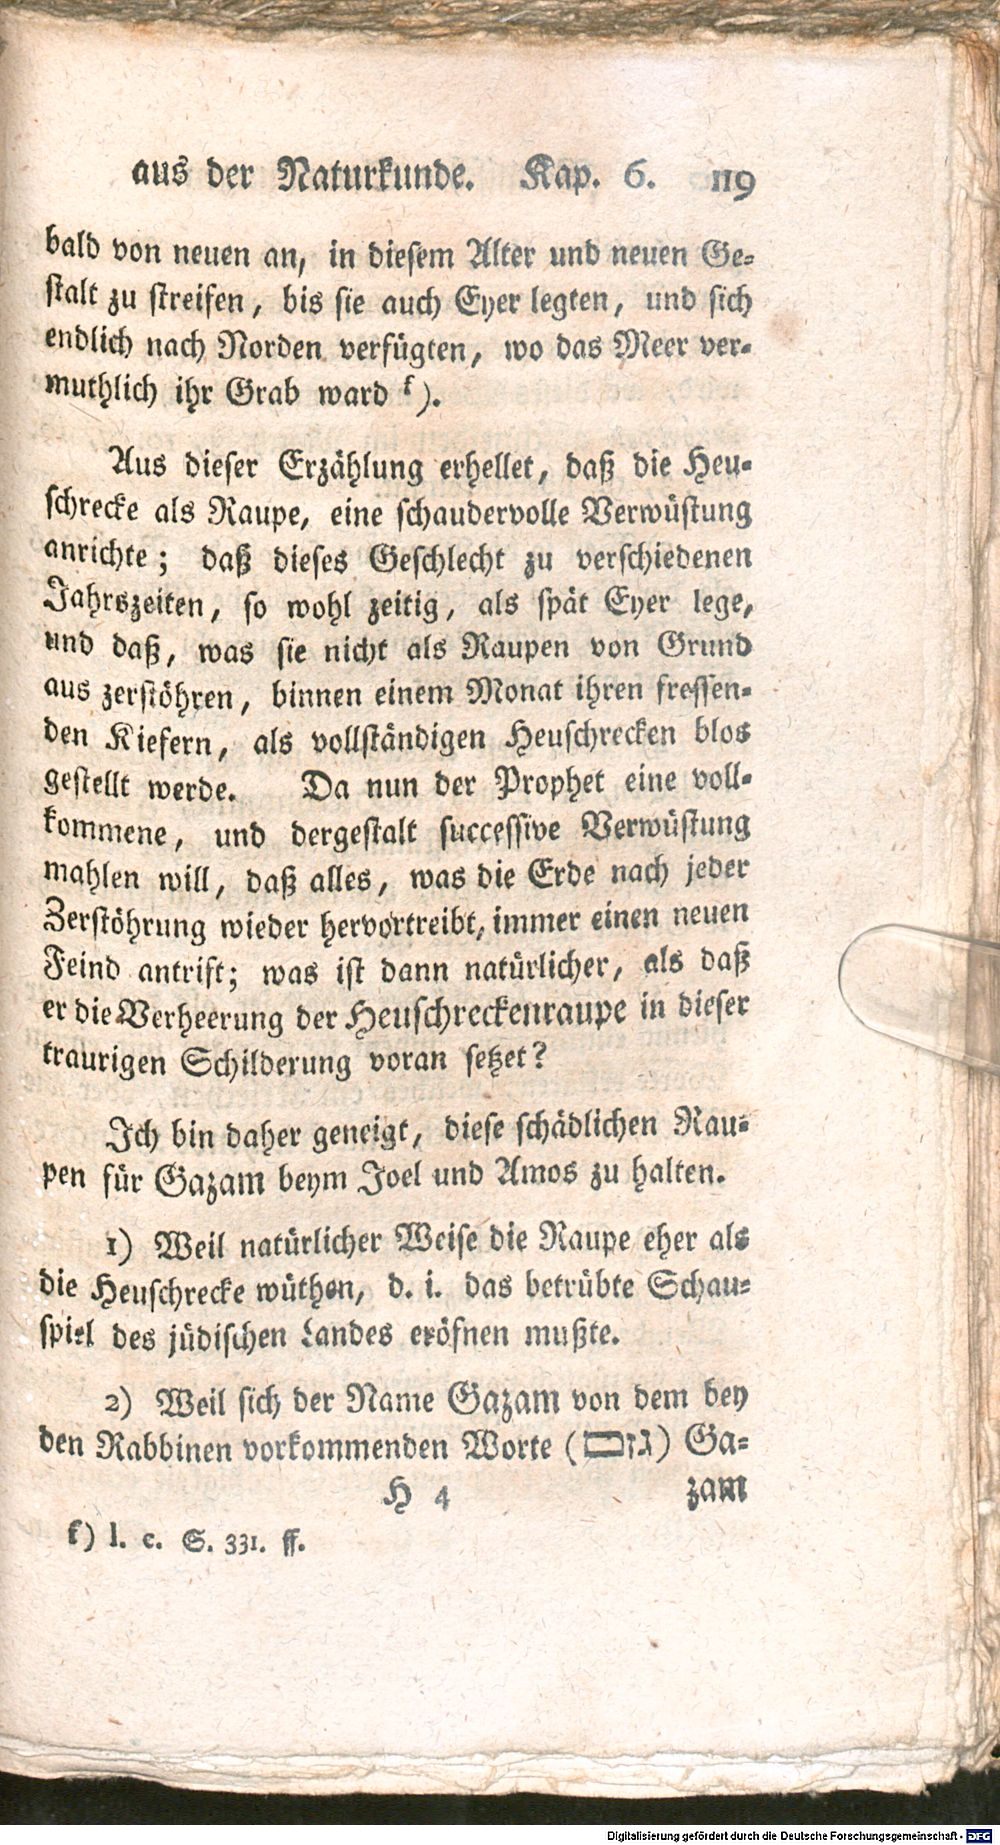 aus der Naturkunde. Kap. 6. 119
bald von neuen an, in diesem Alter und neuen Ge-
stalt zu streifen, bis sie auch Eyer legten, und sich
endlich nach Norden verfügten, wo das Meer ver-
muthlich ihr Grab ward k).
Aus dieser Erzählung erhellet, daß die Heu-
schrecke als Raupe, eine schaudervolle Verwüstung
anrichte; daß dieses Geschlecht zu verschiedenen
Jahrszeiten, so wohl zeitig, als spät Eyer lege,
und daß, was sie nicht als Raupen von Grund
aus zerstöhren, binnen einem Monat ihren fressen-
den Kiefern, als vollständigen Heuschrecken blos
gestellt werde. Da nun der Prophet eine voll-
kommene, und dergestalt successive Verwüstung
mahlen will, daß alles, was die Erde nach jeder
Zerstöhrung wieder hervortreibt, immer einen neuen
Feind antrift; was ist dann natürlicher, als daß
er die Verheerung der Heuschreckenraupe in dieser
traurigen Schilderung voran setzet?
Ich bin daher geneigt, diese schädlichen Rau-
pen für Gazam beym Joel und Amos zu halten.
1) Weil natürlicher Weise die Raupe eher als
die Heuschrecke wüthen, d. i. das betrübte Schau-
spiel des jüdischen Landes eröfnen mußte.
2) Weil sich der Name Gazam von dem bey
den Rabbinen vorkommenden Worte (גזם) Ga-
H 4 zam
k) l. c. S. 331. ff.
Digitalisierung gefördert durch die Deutsche Forschungsgemeinschaft - DFG